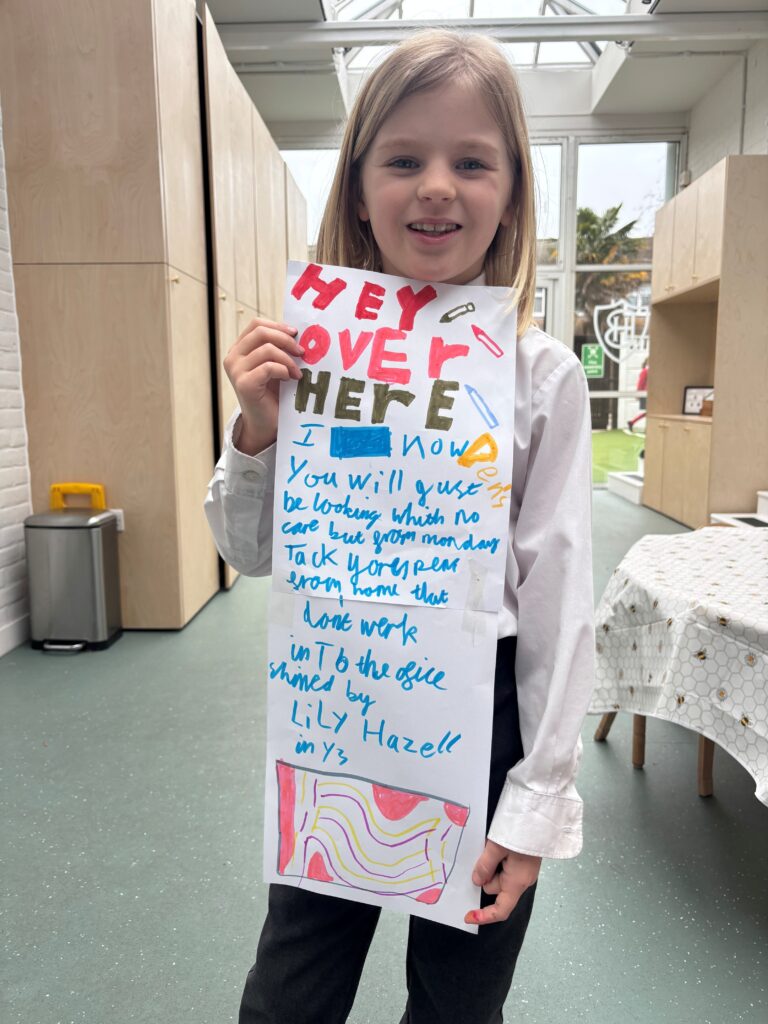 HEY
OVEr
HErE
I now
Pens
You will gust
be looking which no
care but from monday
Tack your pens
from home that
dont werk
in To the ofice
shined by
LiLY Hazell
in Y3